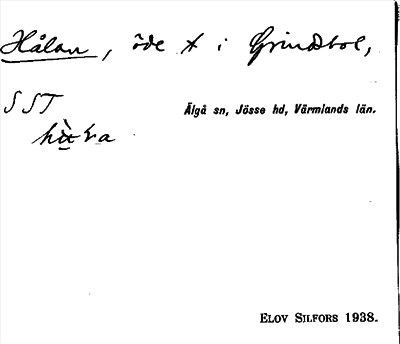 Hålan, öde t i Grindsbol,
SST
Älgå sn, Jösse hd, Värmlands län.
ELOV SILFORS 1938.